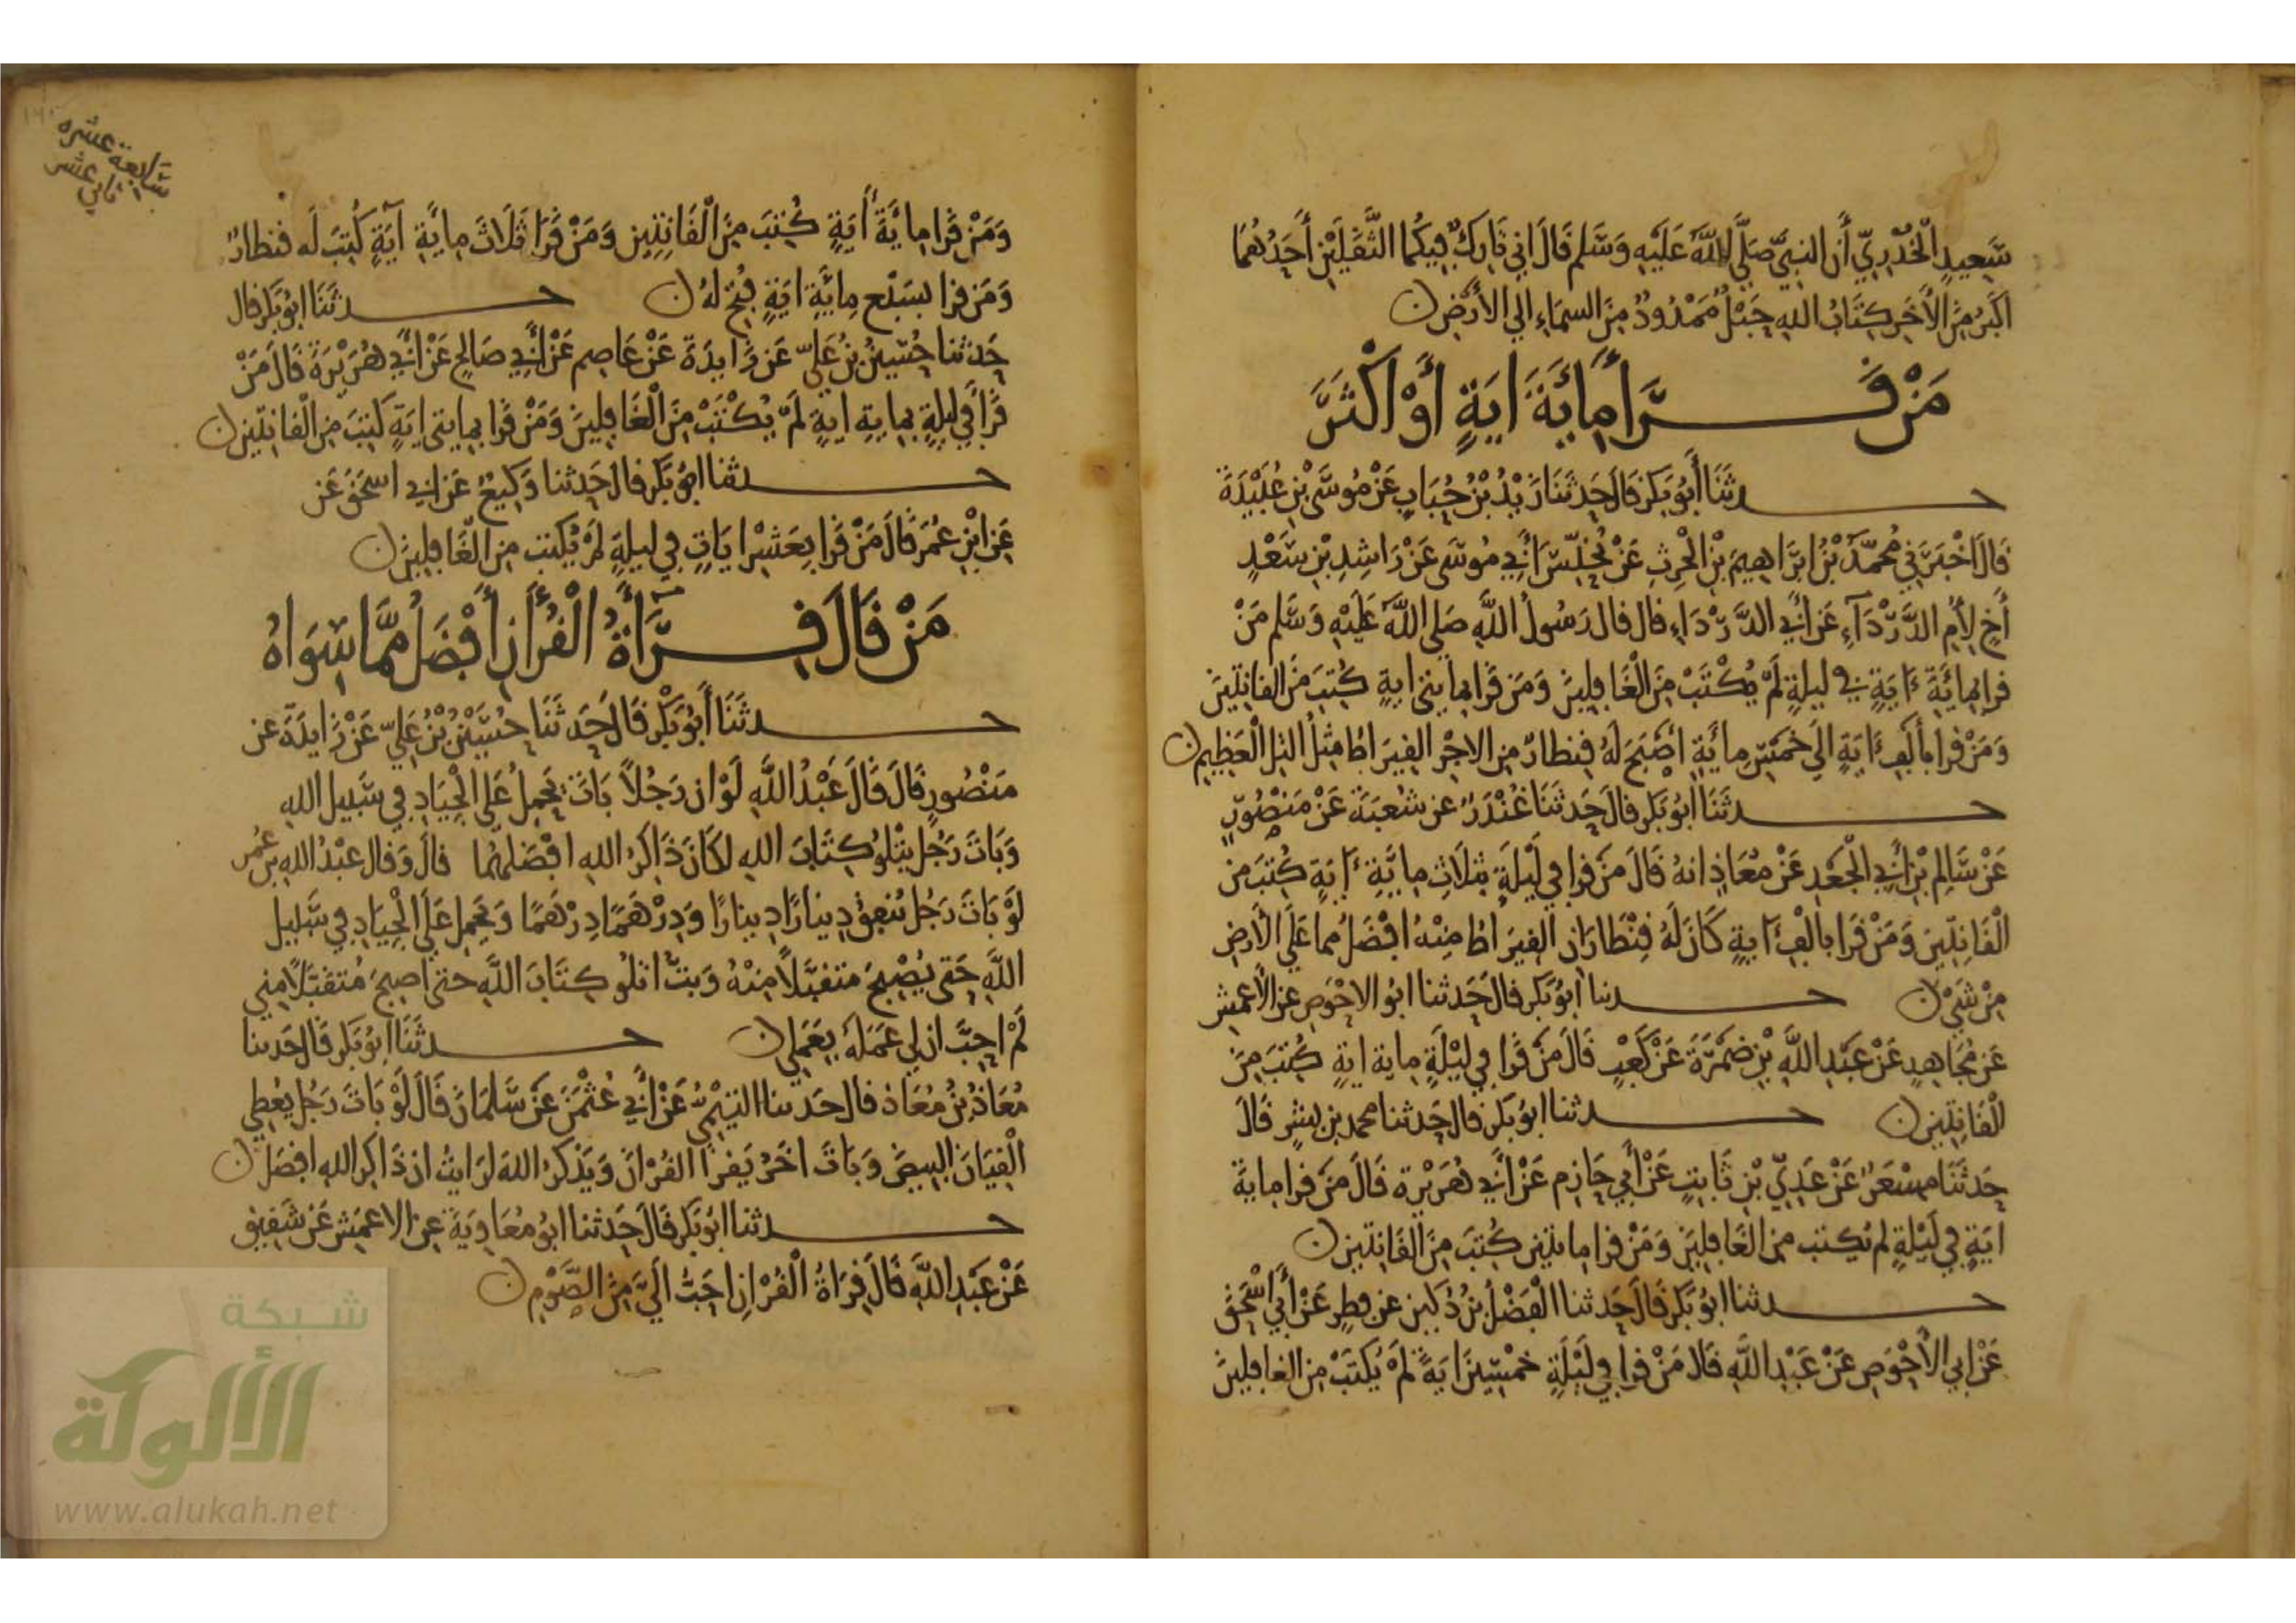 سَعِيدٍ الْخُدْرِيِّ أَن النبيَّ صَلَّى اللَّهُ عَلَيْهِ وَسَّلم قَالَ اني تَارِكٌ فِيكُما الثَّقَلَيْنِ أَحَدُهُمَا
اكَبَرُ مِنَ الأَخَر كِتَابُ اللهِ حَبْلٌ مَمْدُودٌ مِنَ السمَاءِ الي الأَرْضِ
مَنْ قَرَأَ مِائَةَ ايَةٍ أَوْ اكْثَرَ
حدثَنَا أَبُو بَكرٍ قَالَ حَدثَنَا زَيْدُ بْنُ حُبَابٍ عَنْ مُوسَى بْنِ عُبَيْدَةَ
قَالَ اخْبَرَنِي مُحمَّدُ بْنُ ابْرَاهِيمَ بْنِ الْحٰرِثِ عَنْ يُحَنِّسَ أَبِي مُوسَى عَنْ رَاشِدِ بْنِ سَعْدٍ
أَخٍ لِأُمِ الدَّرْدَآءِ عَن أَبي الدَّرْدَاءِ قال قال رَسُولُ اللَّهِ صَلى اللَّهُ عَلَيْهِ وَسَلم مَنْ
قرا بِمائَةِ ءَايَةٍ في ليلةٍ لَمْ يُكْتَبْ مِنَ الْغَافِلِينَ وَمَن قَرَا بمايتي ايةٍ كُتِبَ مَنَ القانِتِينَ
وَمَنْ قرا بأَلفِ ءَايَةٍ الَى خَمْسِ مِائَةِ اصْبَحَ لَهُ قِنطارٌ من الاجْرِ القِيَراطُ مِثلُ التل الْعَظِيمِ
حدثَنَا ابُو بَكر قالَ حَدثنَا غُنْدَرٌ عن شُعبَةَ عَنْ مَنصُورٍ
عَنْ سَالِمِ بْنِ أَبي الْجَعْدِ عَنْ مُعَاذٍ انهُ قَالَ مَن قرا في لَيْلَةٍ بثلَاثِ مِايَّةِ ءَايَةٍ كُتِبَ مِن
الْقَانِتِينَ وَمَنْ قَرَا بالْفِ ءَايةٍ كَانَ لَهُ قِنْطَارَانِ القِيرَاطُ مِنْهُ افْضَلُ مما عَلَى الأَرضِ
مِنْ شَيْءٍ حدثنا ابُو بَكرٍ قالَ حَدثنا ابُو الاحْوَصِ عن الأَعمِشِ
عَن مُجَاهِدٍ عَنْ عَبْدِ اللَّهِ بْنِ ضَمْرَةَ عَنْ كَعْبٍ قَالَ مَن قَرَا في لَيْلَةٍ ماية ايةٍ كُتِبَ مِنَ
الْقَانِتِين حدثنا ابُو بَكرٍ قال حَدثنا محمد بن بشرٍ قَالَ
حدثَنَا مِسْعَرٌ عَنْ عَدِيِّ بْنِ ثَابِتٍ عَنْ أَبي حَازِمٍ عَنْ أَبي هُرَيْرَة قَالَ مَن قرا مايَةَ
ايَةٍ في لَيْلَةٍ لم يُكتب من الغَافِلِينَ وَمَنْ قرا مِائتين كُتِبَ مِنَ القَانِتين
حدثنا ابُو بَكرٍ قَالَ حَدثنا الْفَضْلُ بْنُ دُكَين عن فِطرٍ عَنْ أَبِي اسْحَقَ
عَنْ ابي الأَحْوَصِ عَنْ عَبْدِ اللَّهِ قَالَ مَنْ قرا في لَيْلَةٍ خمْسِينَ ايَةً لَمْ يُكتَبْ مِن الغافِلِينَ
سَابعة عشره
ثاني عشر
وَمَنْ قَرَا مِايَّةَ أَيَةٍ كُتبَ مِنَ الْقَانِتِينِ وَمَنْ قَرَا ثَلَاثَ مِايَّةِ آيَةٍ كُتِبَ لَه قنطارٌ
وَمَن قرا بسَبْع مِائَّةِ ايَةٍ فُتِحَ لهُ حدثَنَا ابُو بَكر قال
حَدثنا حُسَينُ بْنُ عَلِيّ عَن زَايدَةَ عَنْ عَاصِمٍ عَنْ أَبِي صَالِحٍ عَنْ أَبي هُرَيْرَةَ قَالَ مَنْ
قَرَأَ في ليلةٍ بمايةِ ايةٍ لَمْ يُكْتَبْ مِنَ الْغَافِلِينَ وَمَنْ قَرَا بمايتى ايَةٍ كَتِبَ مِن الْقانِتين
حدثنا ابُو بَكرٍ قال حَدثنا وَكِيعٌ عَن ابي اسحَقَ عَن
عَن ابْنِ عُمَرَ قَالَ مَنْ قَرَا بِعَشْرِ ايَاتٍ في ليلةٍ لمْ يُكتب من الْغَافِلِينَ
مَنْ قَالَ قِرَأَةُ الْقُرْأَنِ أَفْضَلُ مِمَّا سِوَاهُ
حدثَنَا أَبُو بَكْرٍ قَالَ حَدثَنَا حُسَيْنُ بْنُ عَلِيّ عَنْ زَايدَةَ عن
مَنْصُورٍ قَالَ قَالَ عَبْدُ اللَّهِ لَوْ ان رَجُلاً بَاتَ يَحْمِلُ عَلَى الْجِيَادِ في سَبيل الله
وَبَاتَ رَجُل يَتْلُو كِتَابَ اللهِ لكَانَ ذَاكِرُ اللهِ افْضَلهُما قالَ وَقال عبْدُ الله بن عُمَر
لَوْ بَاتَ رَجُل يُنفِقُ دِينارًا دِينارًا وَدِرْهَمًا دِرْهَمًا وَيَحمِل عَلَى الْجِيَادِ فِي سَبِيلِ
اللَّهِ حَتى يُصْبِحَ متقبَّلاً مِنْهُ وَبتُّ اتلُو كِتَابَ اللَّهِ حتى اصبِحَ مُتقَبَّلًا مِني
لَمْ احِبَّ ان لي عَمَلَهُ بِعَمَلي حدثَنَا ابُو بَكرٍ قَالَ حَدثنا
مُعَاذُ بْنُ مُعَاذ قال حَدثنا التَيْمِيُّ عَنْ أَبي عُثْمٰنَ عَنْ سَّلمَانَ قَالَ لَوْ بَاتَ رَجُل يُعْطِي
الْقِيَانَ البِيضَ وَبَاتَ اخَرُ يَقرأُ القُرْانَ وَيَذكرُ اللهَ لَرَايتُ ان ذَاكِر اللهِ افضَل
حدثنا ابُو بَكر قَالَ حَدثنا ابُو مُعَاوِيَة عن الاعمَشِ عَن شَقِيقٍ
عَنْ عَبْدِ اللَّهِ قَالَ قِرَاةُ الْقُرْانِ احَبُّ الَيَّ مِنَ الصَّوْمِ
شبكة
الألوكة
www.alukah.net